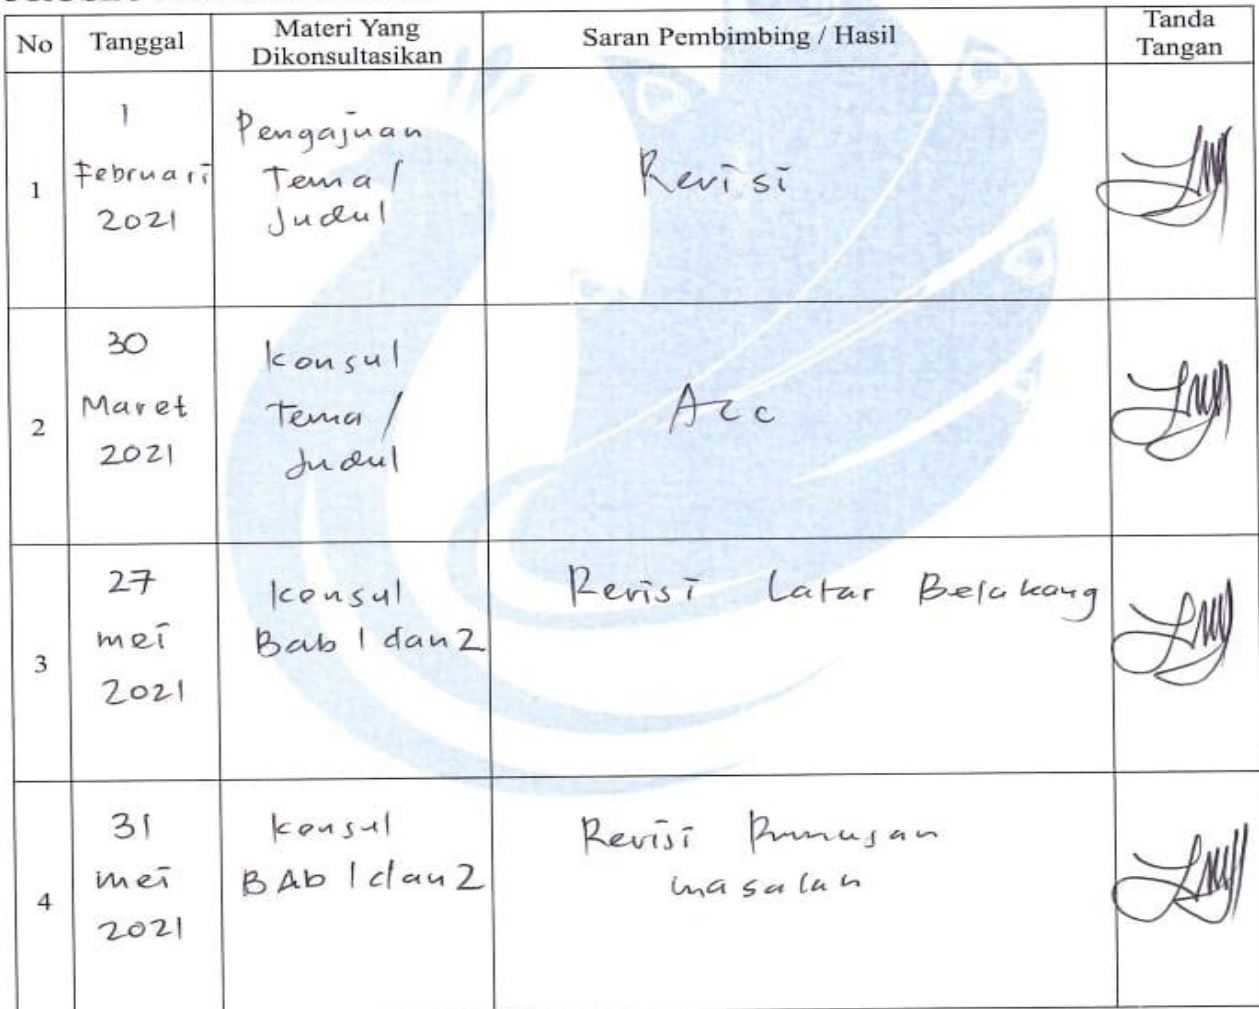 No Tanggal Materi Yang Dikonsultasikan Saran Pembimbing / Hasil Tanda Tangan
1
1
Februari
2021
Pengajuan
Tema /
Judul
Revisi
2
30
Maret
2021
Konsul
Tema /
Judul
Acc
3
27
mei
2021
Konsul
Bab 1 dan 2
Revisi Latar Belakang
4
31
mei
2021
Konsul
BAb 1 dan 2
Revisi Rumusan
masalah